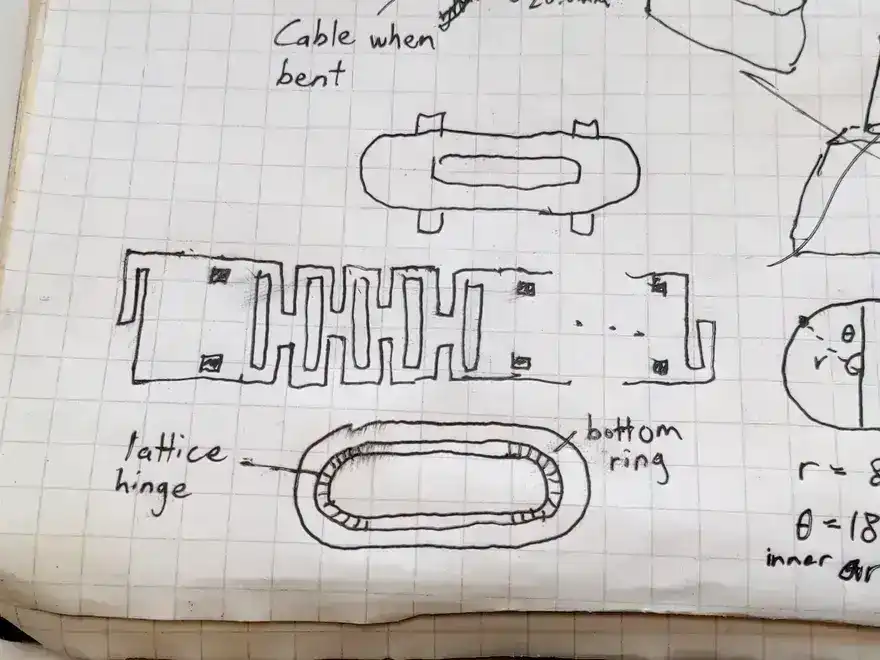 Cable when
bent
lattice
hinge
bottom
ring
θ
r
r = 8
θ = 18
inner